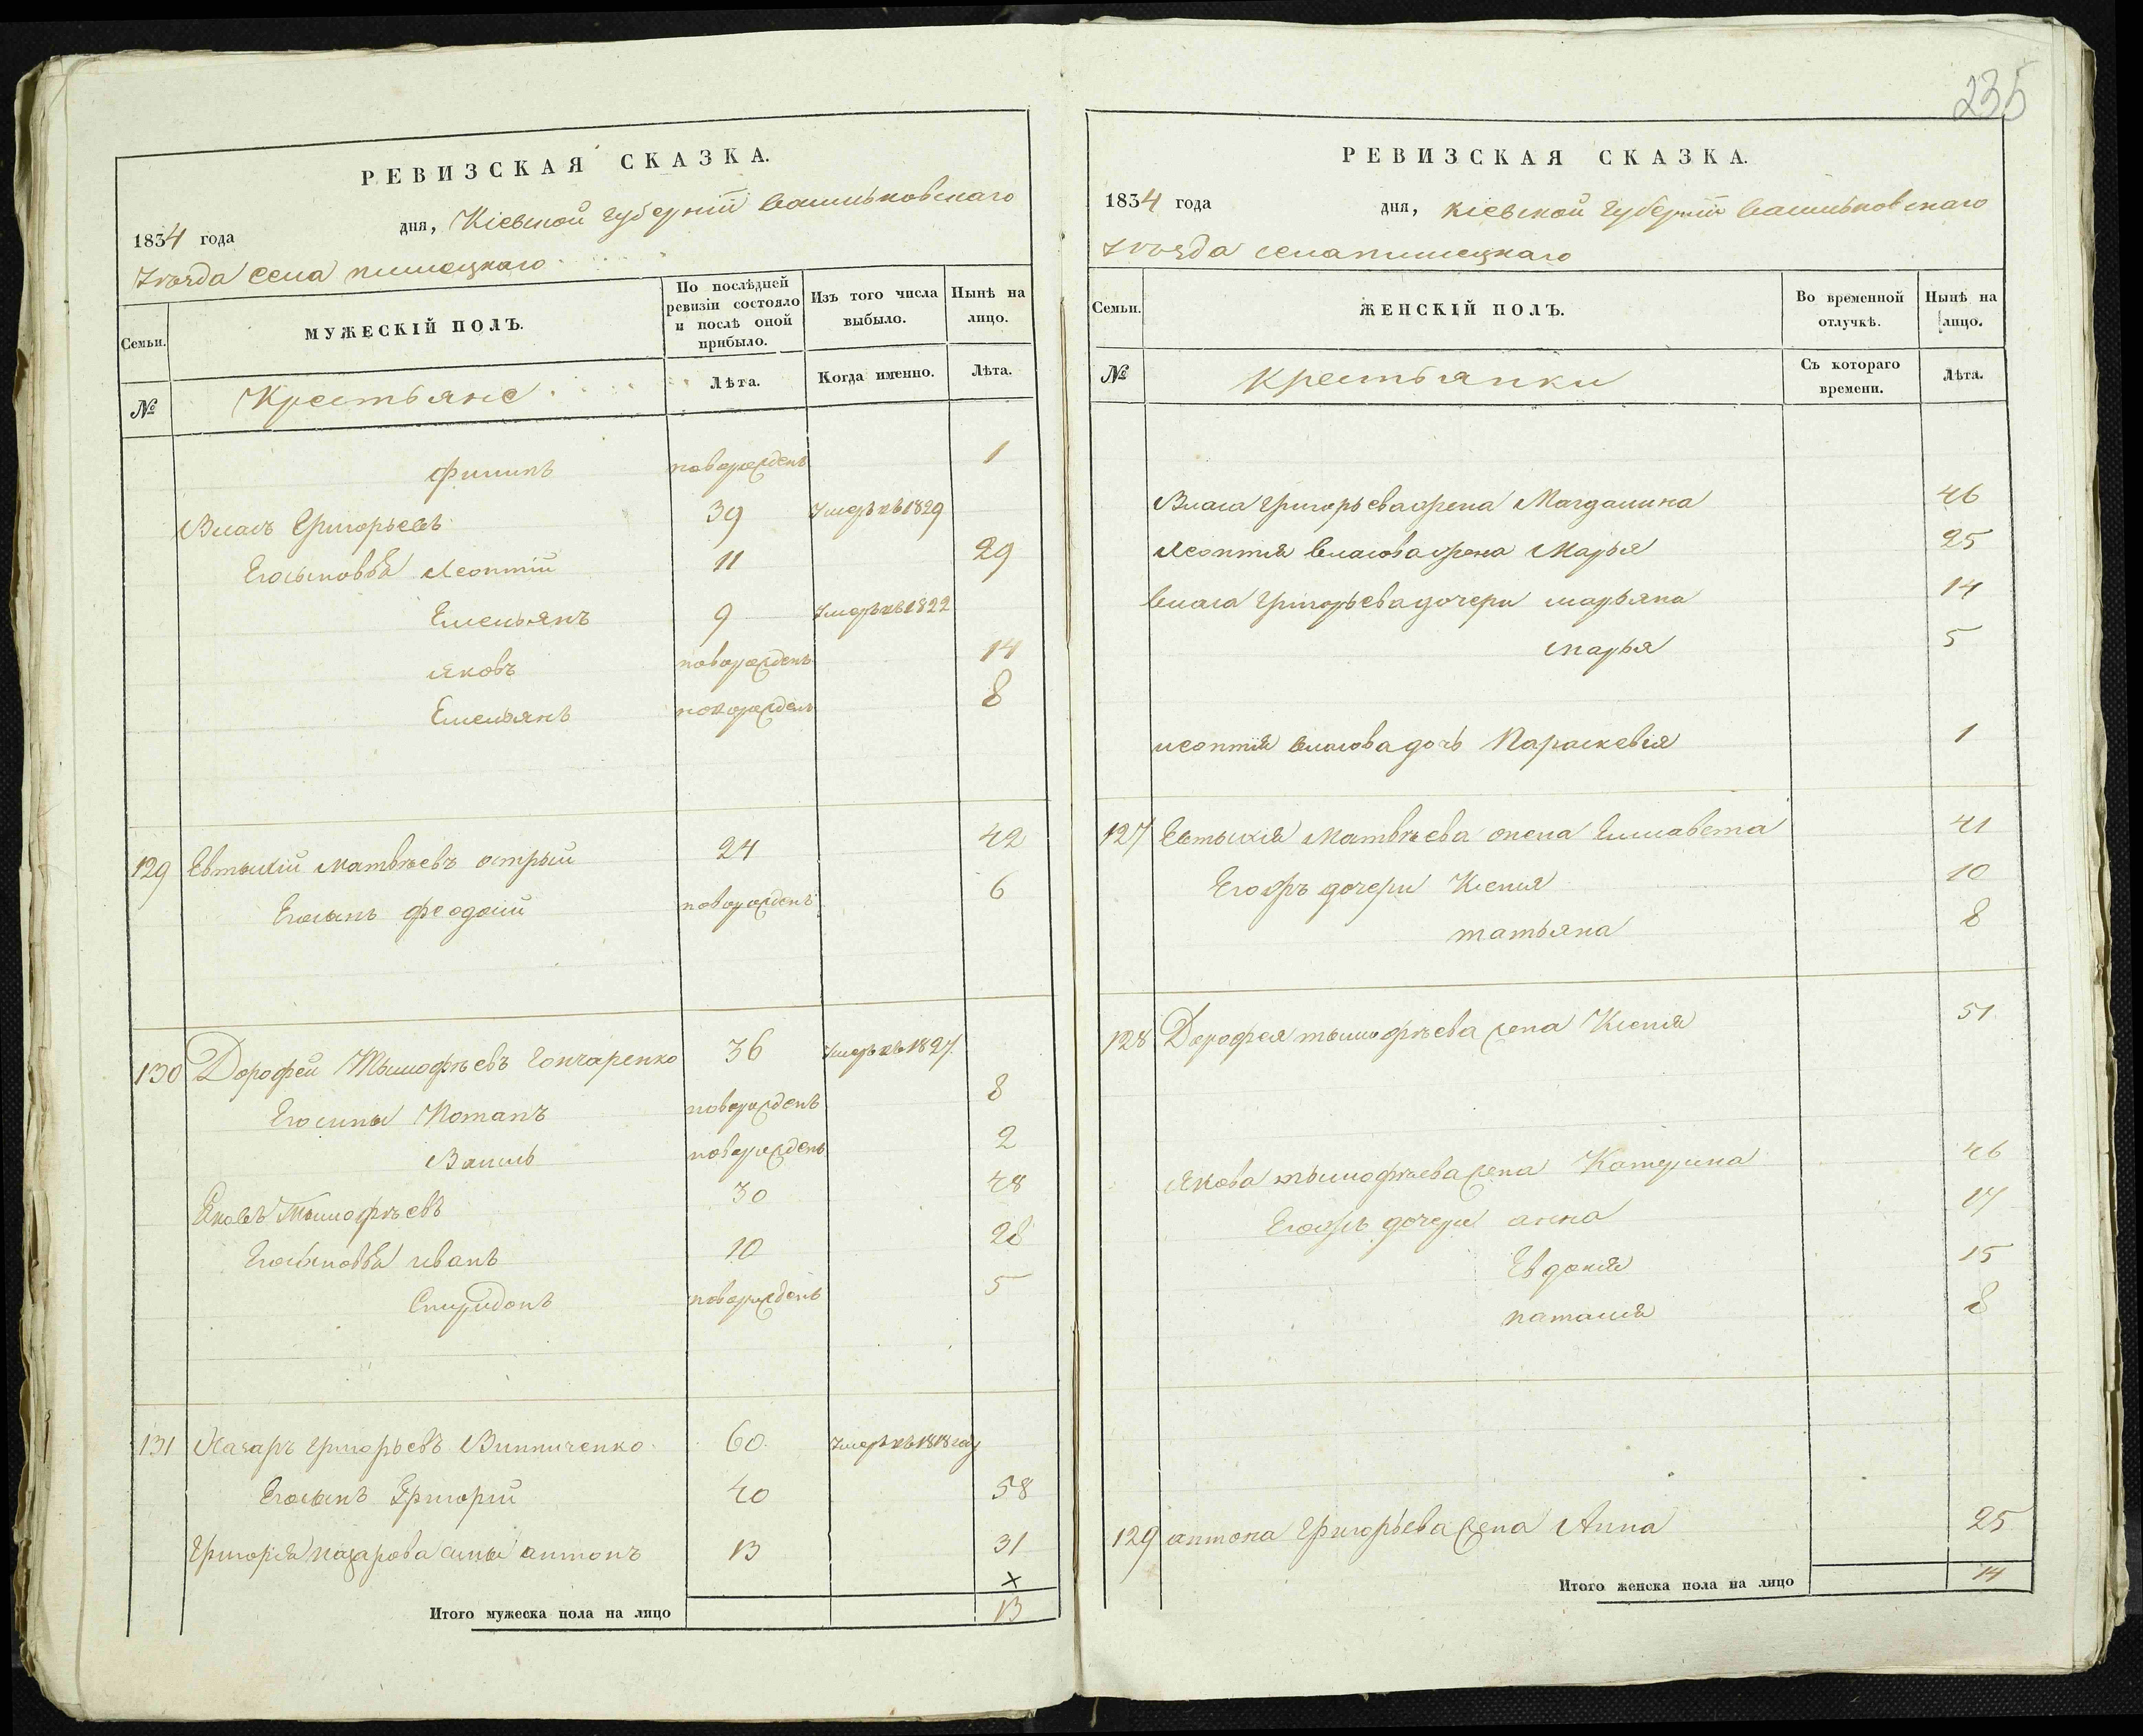 РЕВИЗСКАЯ СКАЗКА.
1834 года дня, Кіевской губерніи васильковскаго
уезда села
Семьи. МУЖЕСКІЙ ПОЛЪ. По послѣдней ревизіи состояло и послѣ оной прибыло. Изъ того числа выбыло. Нынѣ на лицо.
№ Крестьяне Лѣта. Когда именно. Лѣта.
филипъ новорожденъ 1
Власъ Григорьевъ 39 Умеръ въ 1829
Егосыновья Леонтій 11 29
Емельянъ 9 Умеръ въ 1822
яковъ новорожденъ 14
Емельянъ новорожденъ 8
129 Евтыхій матвѣевъ острый 24 42
Егосынъ феодосій новорожденъ 6
130 Дорофей Тымофѣевъ Гончаренко 36 Умеръ въ 1827.
Егосины Потапъ новорожденъ 8
Василь новорожденъ 2
Яковъ Тымофѣевъ 30 48
Егосыновья иванъ 10 28
Спиридонъ новорожденъ 5
131 Назаръ григорьевъ Винниченко 60 Умеръ въ 1818 году
Егосынъ Григорій 40 58
Григорія назарова сины антонъ 13 31
Итого мужеска пола на лицо 13
235
РЕВИЗСКАЯ СКАЗКА.
1834 года дня, кіевской губерніи васильковскаго
уезда села
Семьи. ЖЕНСКІЙ ПОЛЪ. Во временной отлучкѣ. Нынѣ на лицо.
№ крестьянки Съ котораго времени. Лѣта.
Власа григорьева жена Магдалина 46
Леонтія власова жена Марья 25
власа григорьева дочери марьяна 14
марья 5
леонтія власова дочь Параскевія 1
127 Евтыхія Матвѣева жена Елисавета 41
Егожъ дочери Ксенія 10
татьяна 8
128 Дорофея тымофѣева жена Ксенія 51
якова тымофѣева жена Катерина 46
Егожъ дочери анна 17
Евдокія 15
наталія 8
129 антона григорьева жена Анна 25
Итого женска пола на лицо 14